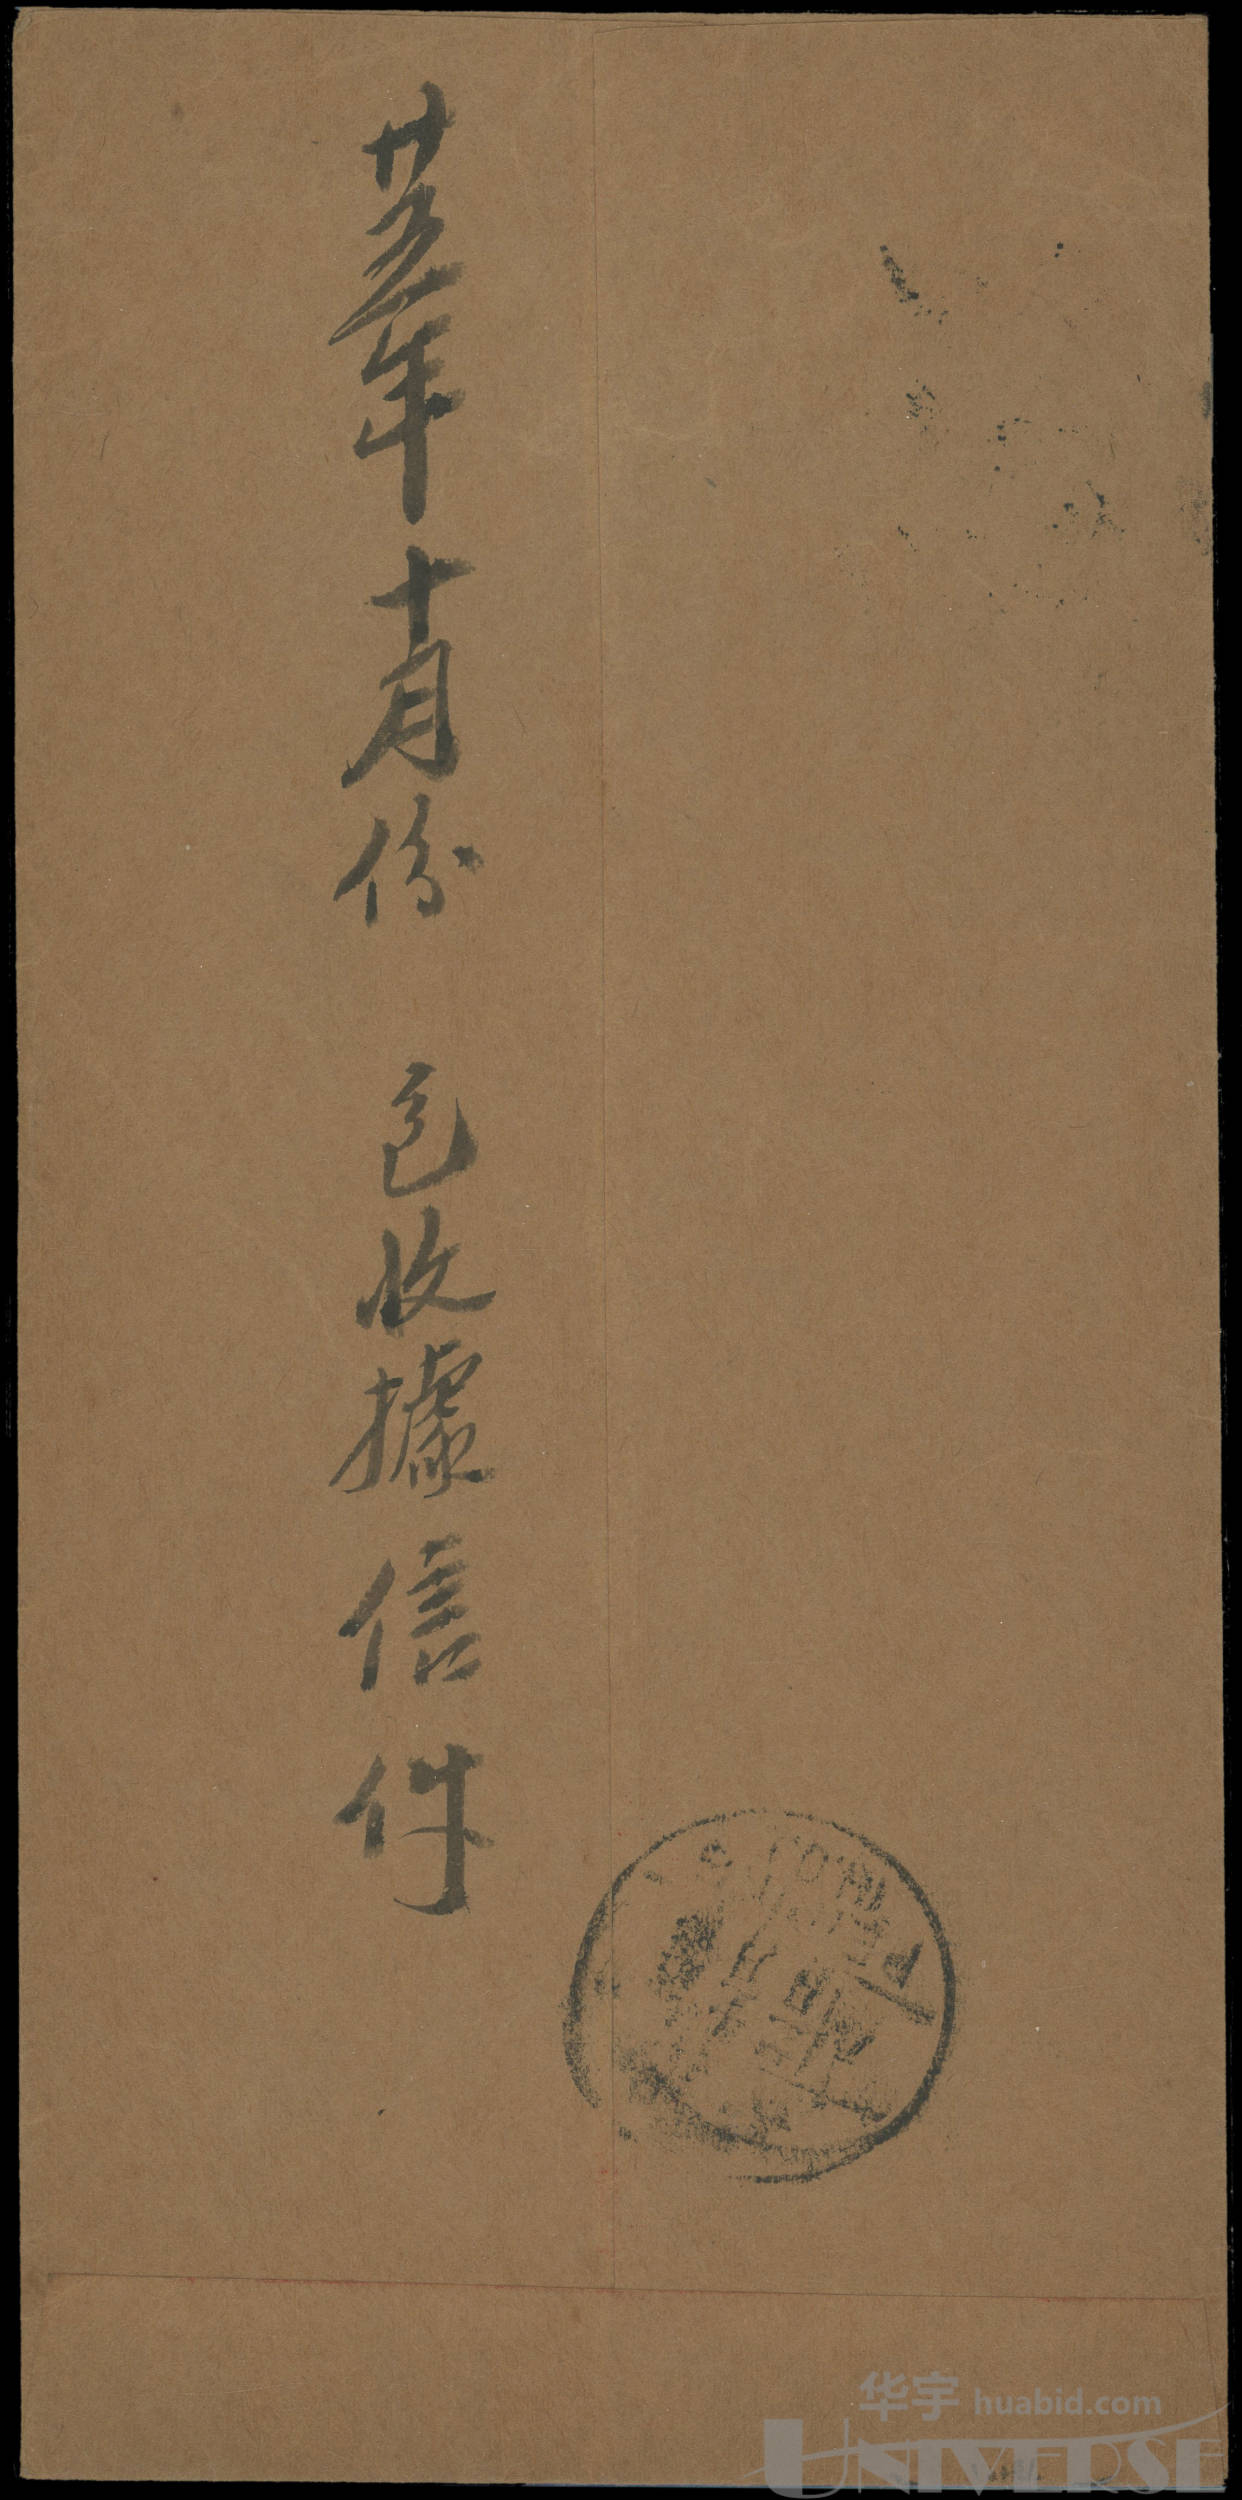 廿五年十月份 包收據信件
华宇 huabid.com
UNIVERSE